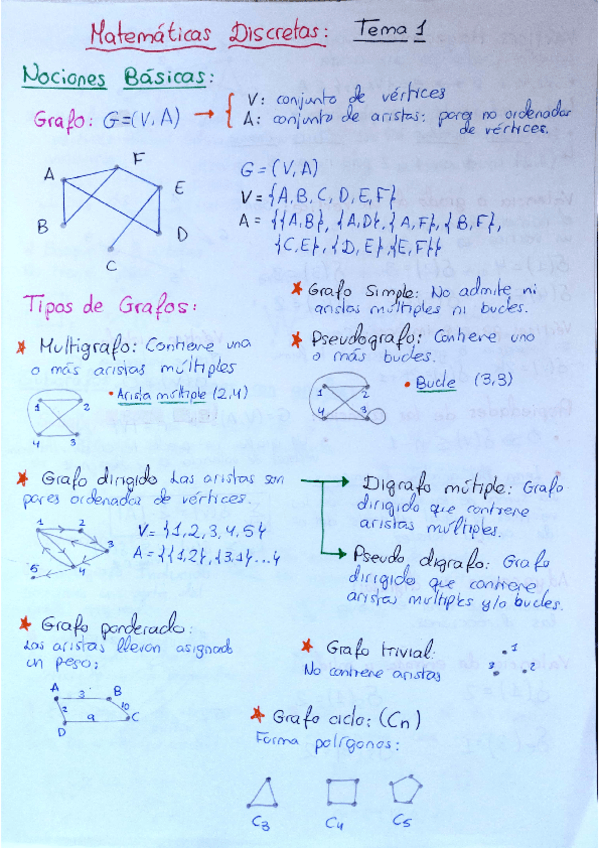 Matemáticas Discretas: Tema 1
Nociones Básicas:
Grafo: G=(V, A) → { V: conjunto de vértices
A: conjunto de aristas: pares no ordenados
de vértices.
A
F
E
B
D
C
G = (V, A)
V = {A, B, C, D, E, F}
A = {{A, B}, {A, D}, {A, F}, {B, F},
{C, E}, {D, E}, {E, F}}
Tipos de Grafos:
* Grafo Simple: No admite ni
aristas múltiples ni bucles.
* Multigrafo: Contiene una
o más aristas múltiples
• Arista múltiple (2,4)
1 2
4 3
* Pseudografo: Contiene uno
o más bucles.
• Bucle (3,3)
1 2
4 3
* Grafo dirigido Las aristas son
pares ordenados de vértices.
1 2
3
5 4
V = {1, 2, 3, 4, 5}
A = {{1, 2}, {3, 1} ... }
Digrafo mútiple: Grafo
dirigido que contiene
aristas múltiples.
Pseudo digrafo: Grafo
dirigido que contiene
aristas multiples y/o bucles.
* Grafo ponderado:
Las aristas llevan asignado
un peso:
A 3 B
2 10
D 9 C
* Grafo trivial:
No contiene aristas
1
3 2
* Grafo ciclo: (Cn)
Forma polígonos:
C3 C4 C5